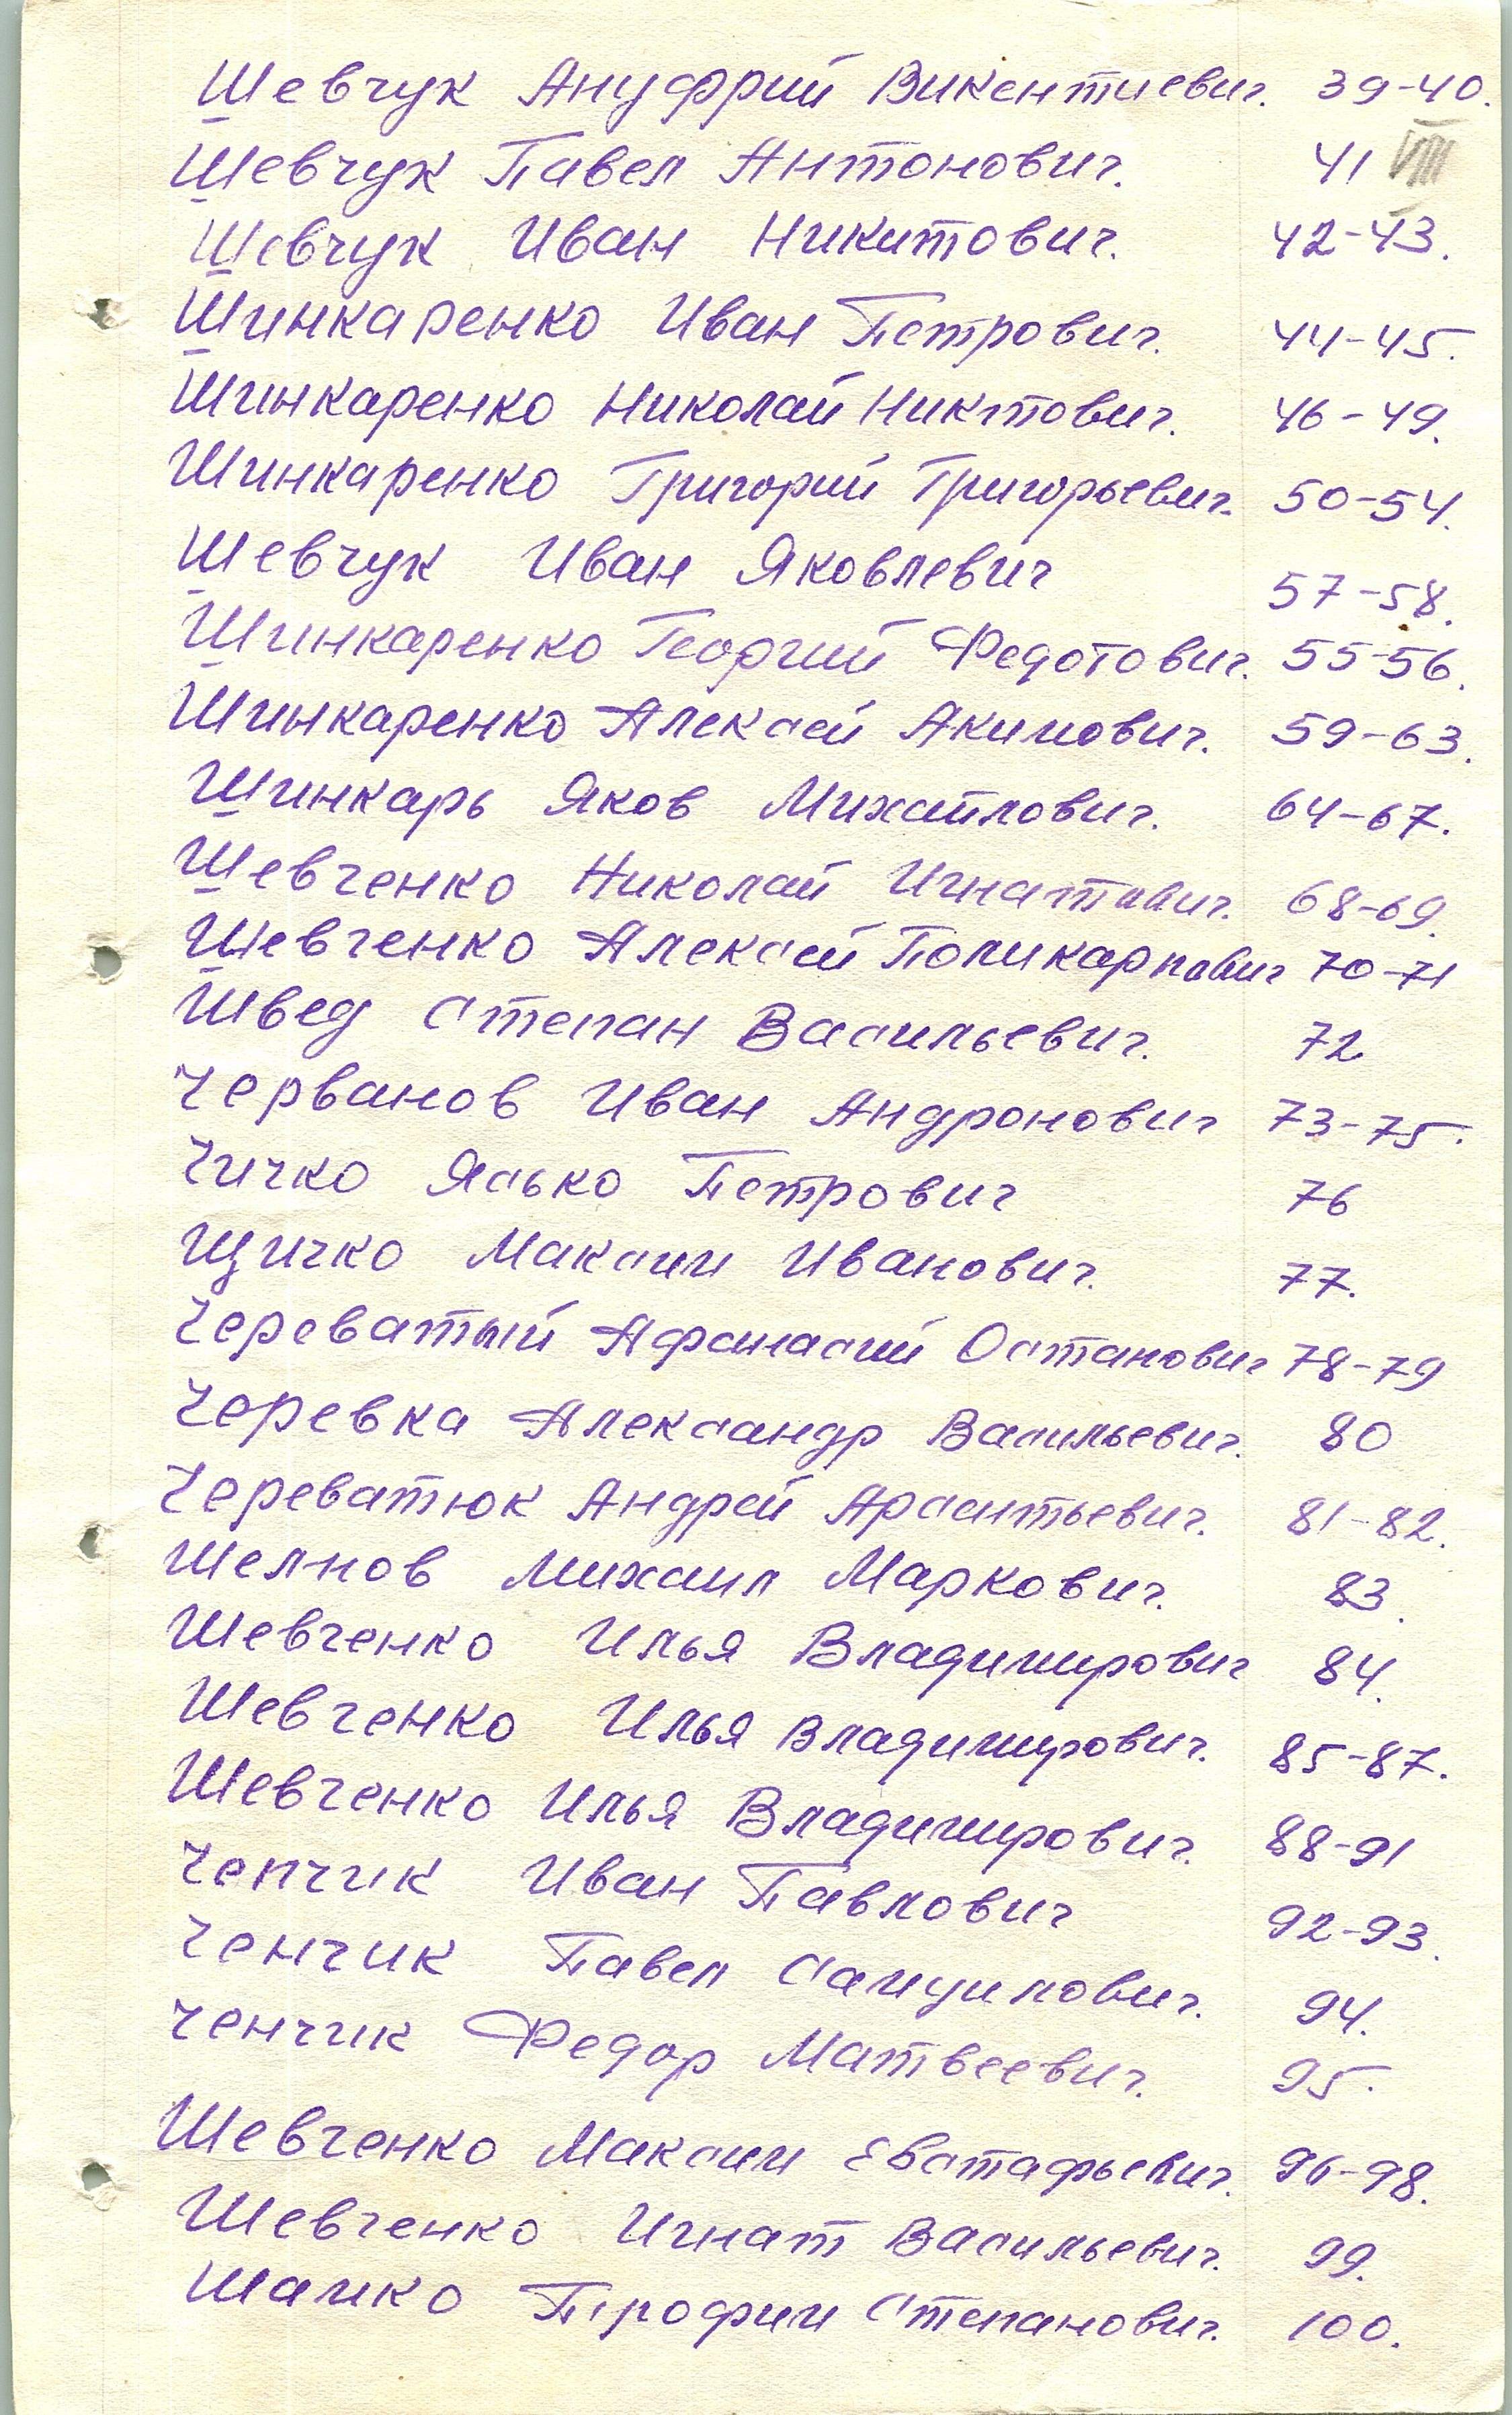 Шевчук Ануфрий Викентиевич. 39-40.
Шевчук Павел Антонович. 41 VIII
Шевчук Иван Никитович. 42-43.
Шинкаренко Иван Петрович. 44-45.
Шинкаренко Николай Никтович. 46-49.
Шинкаренко Григорий Григорьевич. 50-54.
Шевчук Иван Яковлевич 57-58.
Шинкаренко Георгий Федотович. 55-56.
Шинкаренко Алексей Акимович. 59-63.
Шинкарь Яков Михайлович. 64-67.
Шевченко Николай Игнатович. 68-69.
Шевченко Алексей Поликарпович 70-71
Швед Степан Васильевич. 72
Черванов Иван Андронович 73-75.
Чичко Ясько Петрович 76
Щичко Максим Иванович. 77.
Череватый Афанасий Остапович 78-79
Черевка Александр Васильевич. 80
Череватюк Андрей Арсентьевич. 81-82.
Шелнов Михаил Маркович. 83.
Шевченко Илья Владимирович 84.
Шевченко Илья Владимирович. 85-87.
Шевченко Илья Владимирович. 88-91
Чепчик Иван Павлович 92-93.
Ченчик Павел Самуилович. 94.
Ченчик Федор Матвеевич. 95.
Шевченко Максим Евстафьевич. 96-98.
Шевченко Игнат Васильевич. 99.
Шамко Трофим Степанович. 100.